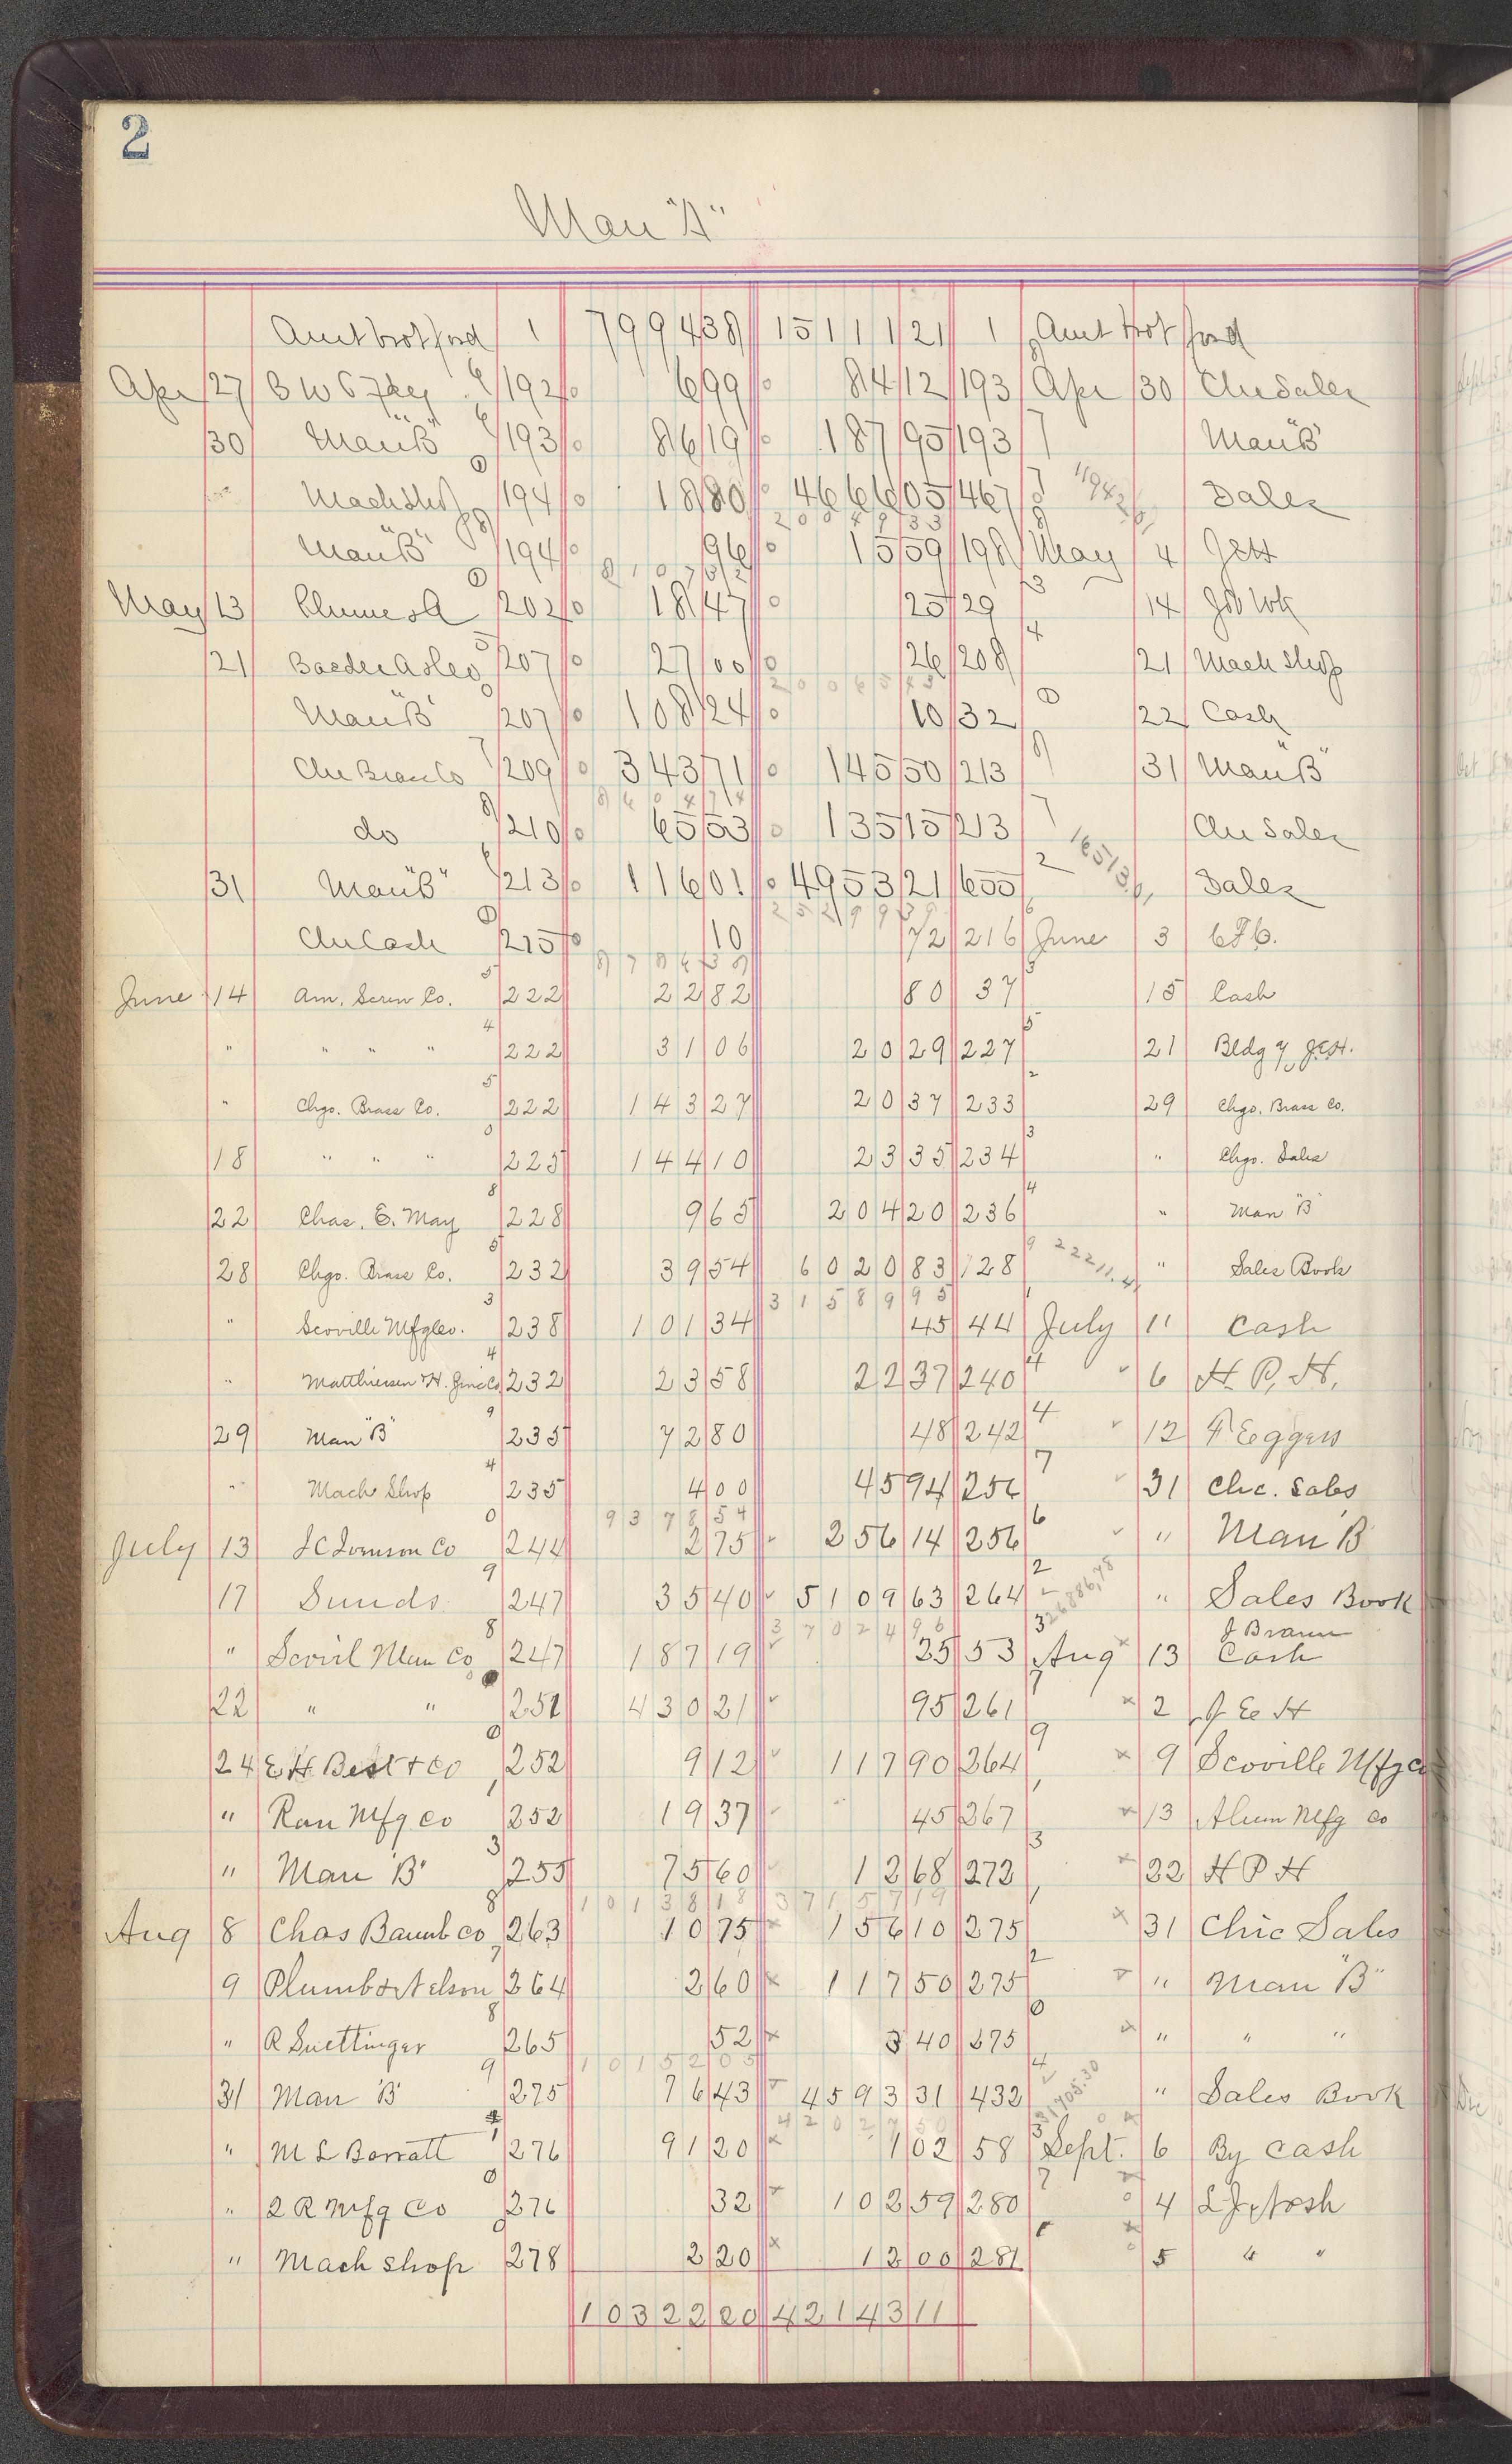 2
Man "A"
Amt brot ford 1 7994 38 15111 21 1 Amt brot ford
Apr 27 192 6 99 84 12 193 Apr 30 Chi Sales
30 Man "B" 193 86 19 187 95 193 Man "B"
Mach Shop 194 18 80 4666 05 467 Sales
2004933
Man "B" 194 96 15 59 198 May 4 JEH
810732
May 13 202 18 47 25 29 14 Job Wk
21 207 27 00 26 208 21 Mach Shop
2006543
Man "B" 207 108 24 10 32 22 Cash
Chi Brass Co 209 343 71 145 50 213 31 Man "B"
860474
do 210 65 53 135 15 213 Chi Sales
31 Man "B" 213 116 01 4953 21 655 Sales
2529939
Chi Cash 215 10 72 216 June 3
878638
June 14 Am. Screw Co. 222 22 82 80 37 15 Cash
" " " " 222 31 06 20 29 227 21 Bldg 7 JEH.
" Chgo. Brass Co. 222 143 27 20 37 233 29 Chgo. Brass Co.
18 " " " 225 144 10 23 35 234 " Chgo. Sales
22 Chas. E. May 228 9 65 204 20 236 " Man "B"
28 Chgo. Brass Co. 232 39 54 6020 83 128 " Sales Book
3158995
" Scoville Mfg Co. 238 101 34 45 44 July 11 Cash
" Matthiessen & H. Zinc Co 232 23 58 22 37 240 6 H. P. H.
29 Man "B" 235 72 80 48 242 12 F Eggers
" Mach Shop 235 4 00 45 94 256 31 Chc. Sales
937854
July 13 244 2 75 256 14 256 " Man "B"
17 Sunds. 247 35 40 5109 63 264 " Sales Book
3702496
J Braun
" Scovil Man Co 247 187 19 25 53 Aug 13 Cash
22 " " 251 430 21 95 261 2 J E H
24 E H Best & Co 252 9 12 117 90 264 9 Scoville Mfg Co
" Ran Mfg Co 252 19 37 45 267 13 Alum Mfg Co
" Man "B" 255 75 60 12 68 272 22 H P H
1013818 3715719
Aug 8 Chas Baumb Co 263 10 75 156 10 275 31 Chic Sales
9 Plumb & Nelson 264 2 60 117 50 275 " Man "B"
" R Suettinger 265 52 3 40 275 " " "
1015205
31 Man "B" 275 76 43 4593 31 432 " Sales Book
" M L Barratt 276 91 20 1 02 58 Sept. 6 By Cash
" 2 R Mfg Co 276 32 102 59 280 4
" Mach Shop 278 2 20 12 00 281 5 " "
10322 20 42143 11